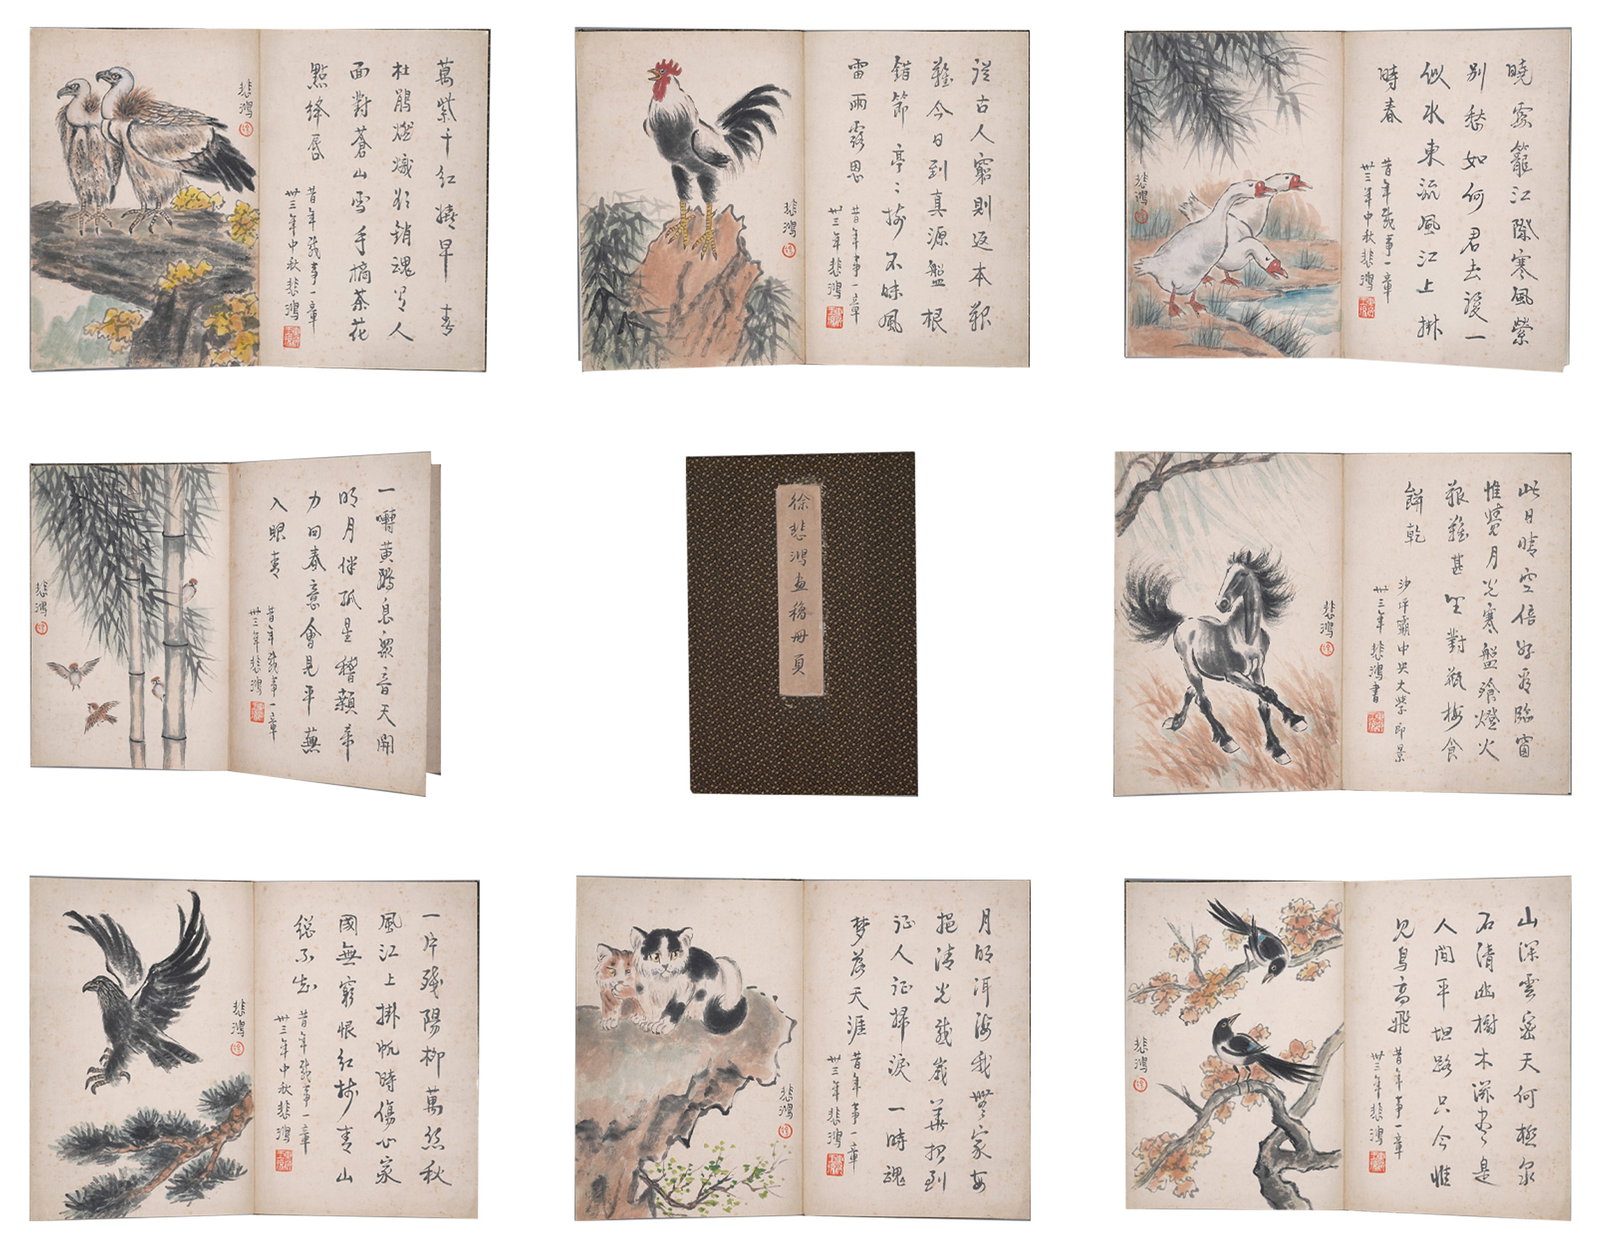 萬紫千红繞早春
杜鵑燃爛欲銷魂有人
面對蒼山雪手摘茶花
點絳唇
昔年战事一章
卅三年中秋悲鴻
悲鴻
從古人窮則返本艱
難今日到真源盤根
錯節亭〻接不昧風
雷雨露恩
昔年事一章
卅三年悲鴻
悲鴻
曉霧籠江際寒風縈
别愁如何君去後一
似水東流風江上掛
時春
昔年战事一章
卅三年中秋悲鴻
悲鴻
一囀黄鸝息衆音天開
明月伴孤星
力回春意會見平蕪
入眼青
昔年战事一章
卅三年悲鴻
悲鴻
徐悲鴻画稿册頁
此日晴空倍好看臨窗
惟覺月光寒盤飱燈火
艱難甚坐對瓶梅食
餅乾
沙坪霸中央大學即景
卅三年悲鴻書
悲鴻
一片殘陽柳萬絲秋
風江上掛帆時傷心家
國無窮恨红樹青山
總不知
昔年战事一章
卅三年中秋悲鴻
悲鴻
月明洱海我無家安
挹清光就歲華招到
征人征掃淚一時魂
梦落天涯
昔年事一章
卅三年悲鴻
悲鴻
山深雲密天何極泉
石清幽樹木深盡是
人間平坦路只今惟
見鳥高飛
昔年事一章
卅三年悲鴻
悲鴻